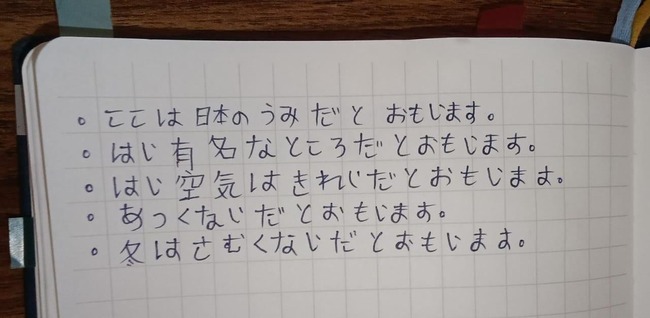 。ここは日本のうみだとおもいます。
。はい有名なところだとおもいます。
。はい空気はきれいだとおもいます。
。あつくないだとおもいます。
。冬はさむくないだとおもいます。